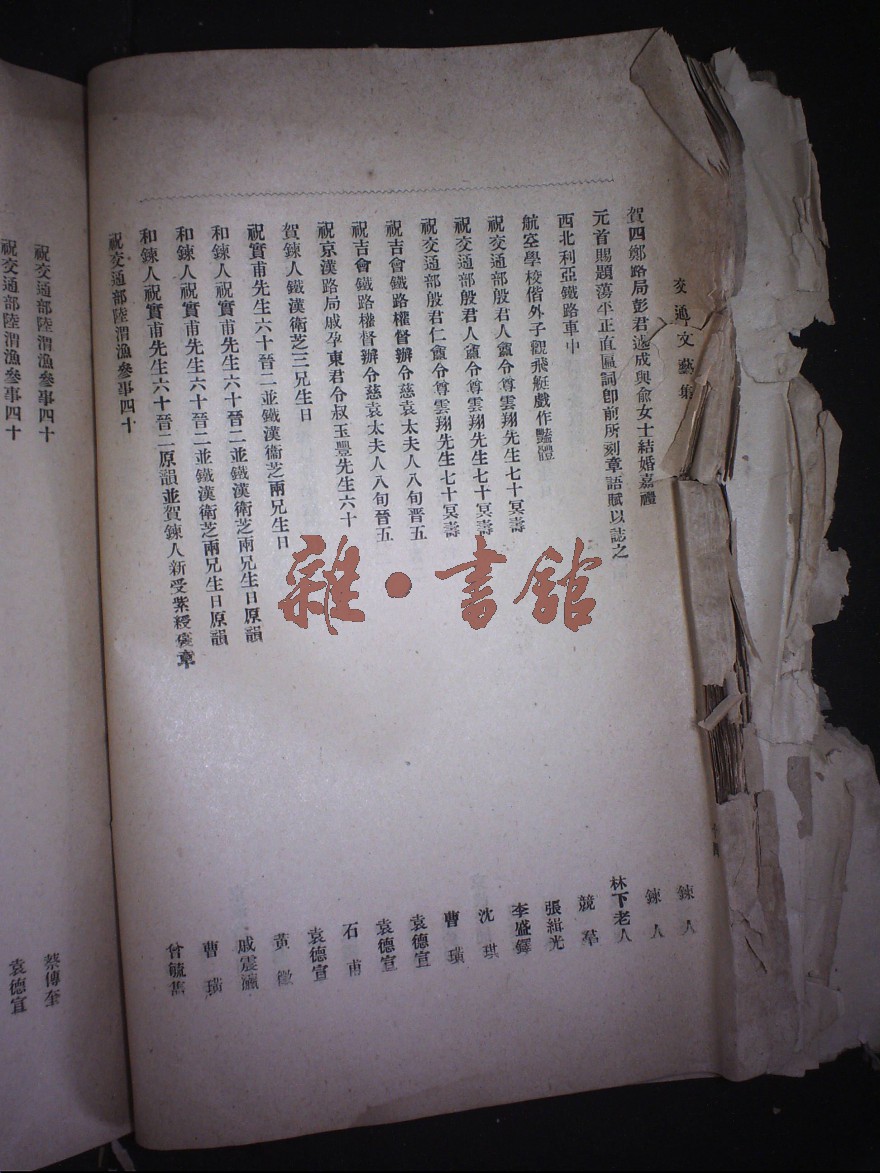 交通文藝集
賀四鄭路局彭君述成與俞女士結婚嘉禮 鍊人
元首賜題蕩平正直匾詞卽前所刻章語賦以誌之 鍊人
西北利亞鐵路車中 林下老人
航空學校偕外子觀飛艇戲作豔體 競羣
祝交通部殷君人龕令尊雲翔先生七十冥壽 張緝光
祝交通部殷君人龕令尊雲翔先生七十冥壽 李盛鐸
祝交通部殷君仁龕令尊雲翔先生七十冥壽 沈琪
祝吉會鐵路權督辦令慈袁太夫人八旬晋五 曹璜
祝吉會鐵路權督辦令慈袁太夫人八旬晉五 袁德宣
祝京漢路局戚孕東君令叔玉豐先生六十 袁德宣
賀鍊人鐵漢衛芝三兄生日 石甫
祝實甫先生六十晉二並鐵漢衛芝兩兄生日 袁德宣
和鍊人祝實甫先生六十晉二並鐵漢衛芝兩兄生日原韻 黃徵
和鍊人祝實甫先生六十晉二並鐵漢衛芝兩兄生日原韻 戚震瀛
和鍊人祝實甫先生六十晉二原韻並賀鍊人新受紫綬褒章 曹璜
祝交通部陸渭漁參事四十 曾毓雋
祝交通部陸渭漁參事四十 蔡傳奎
祝交通部陸渭漁參事四十 袁德宣
雜·書館